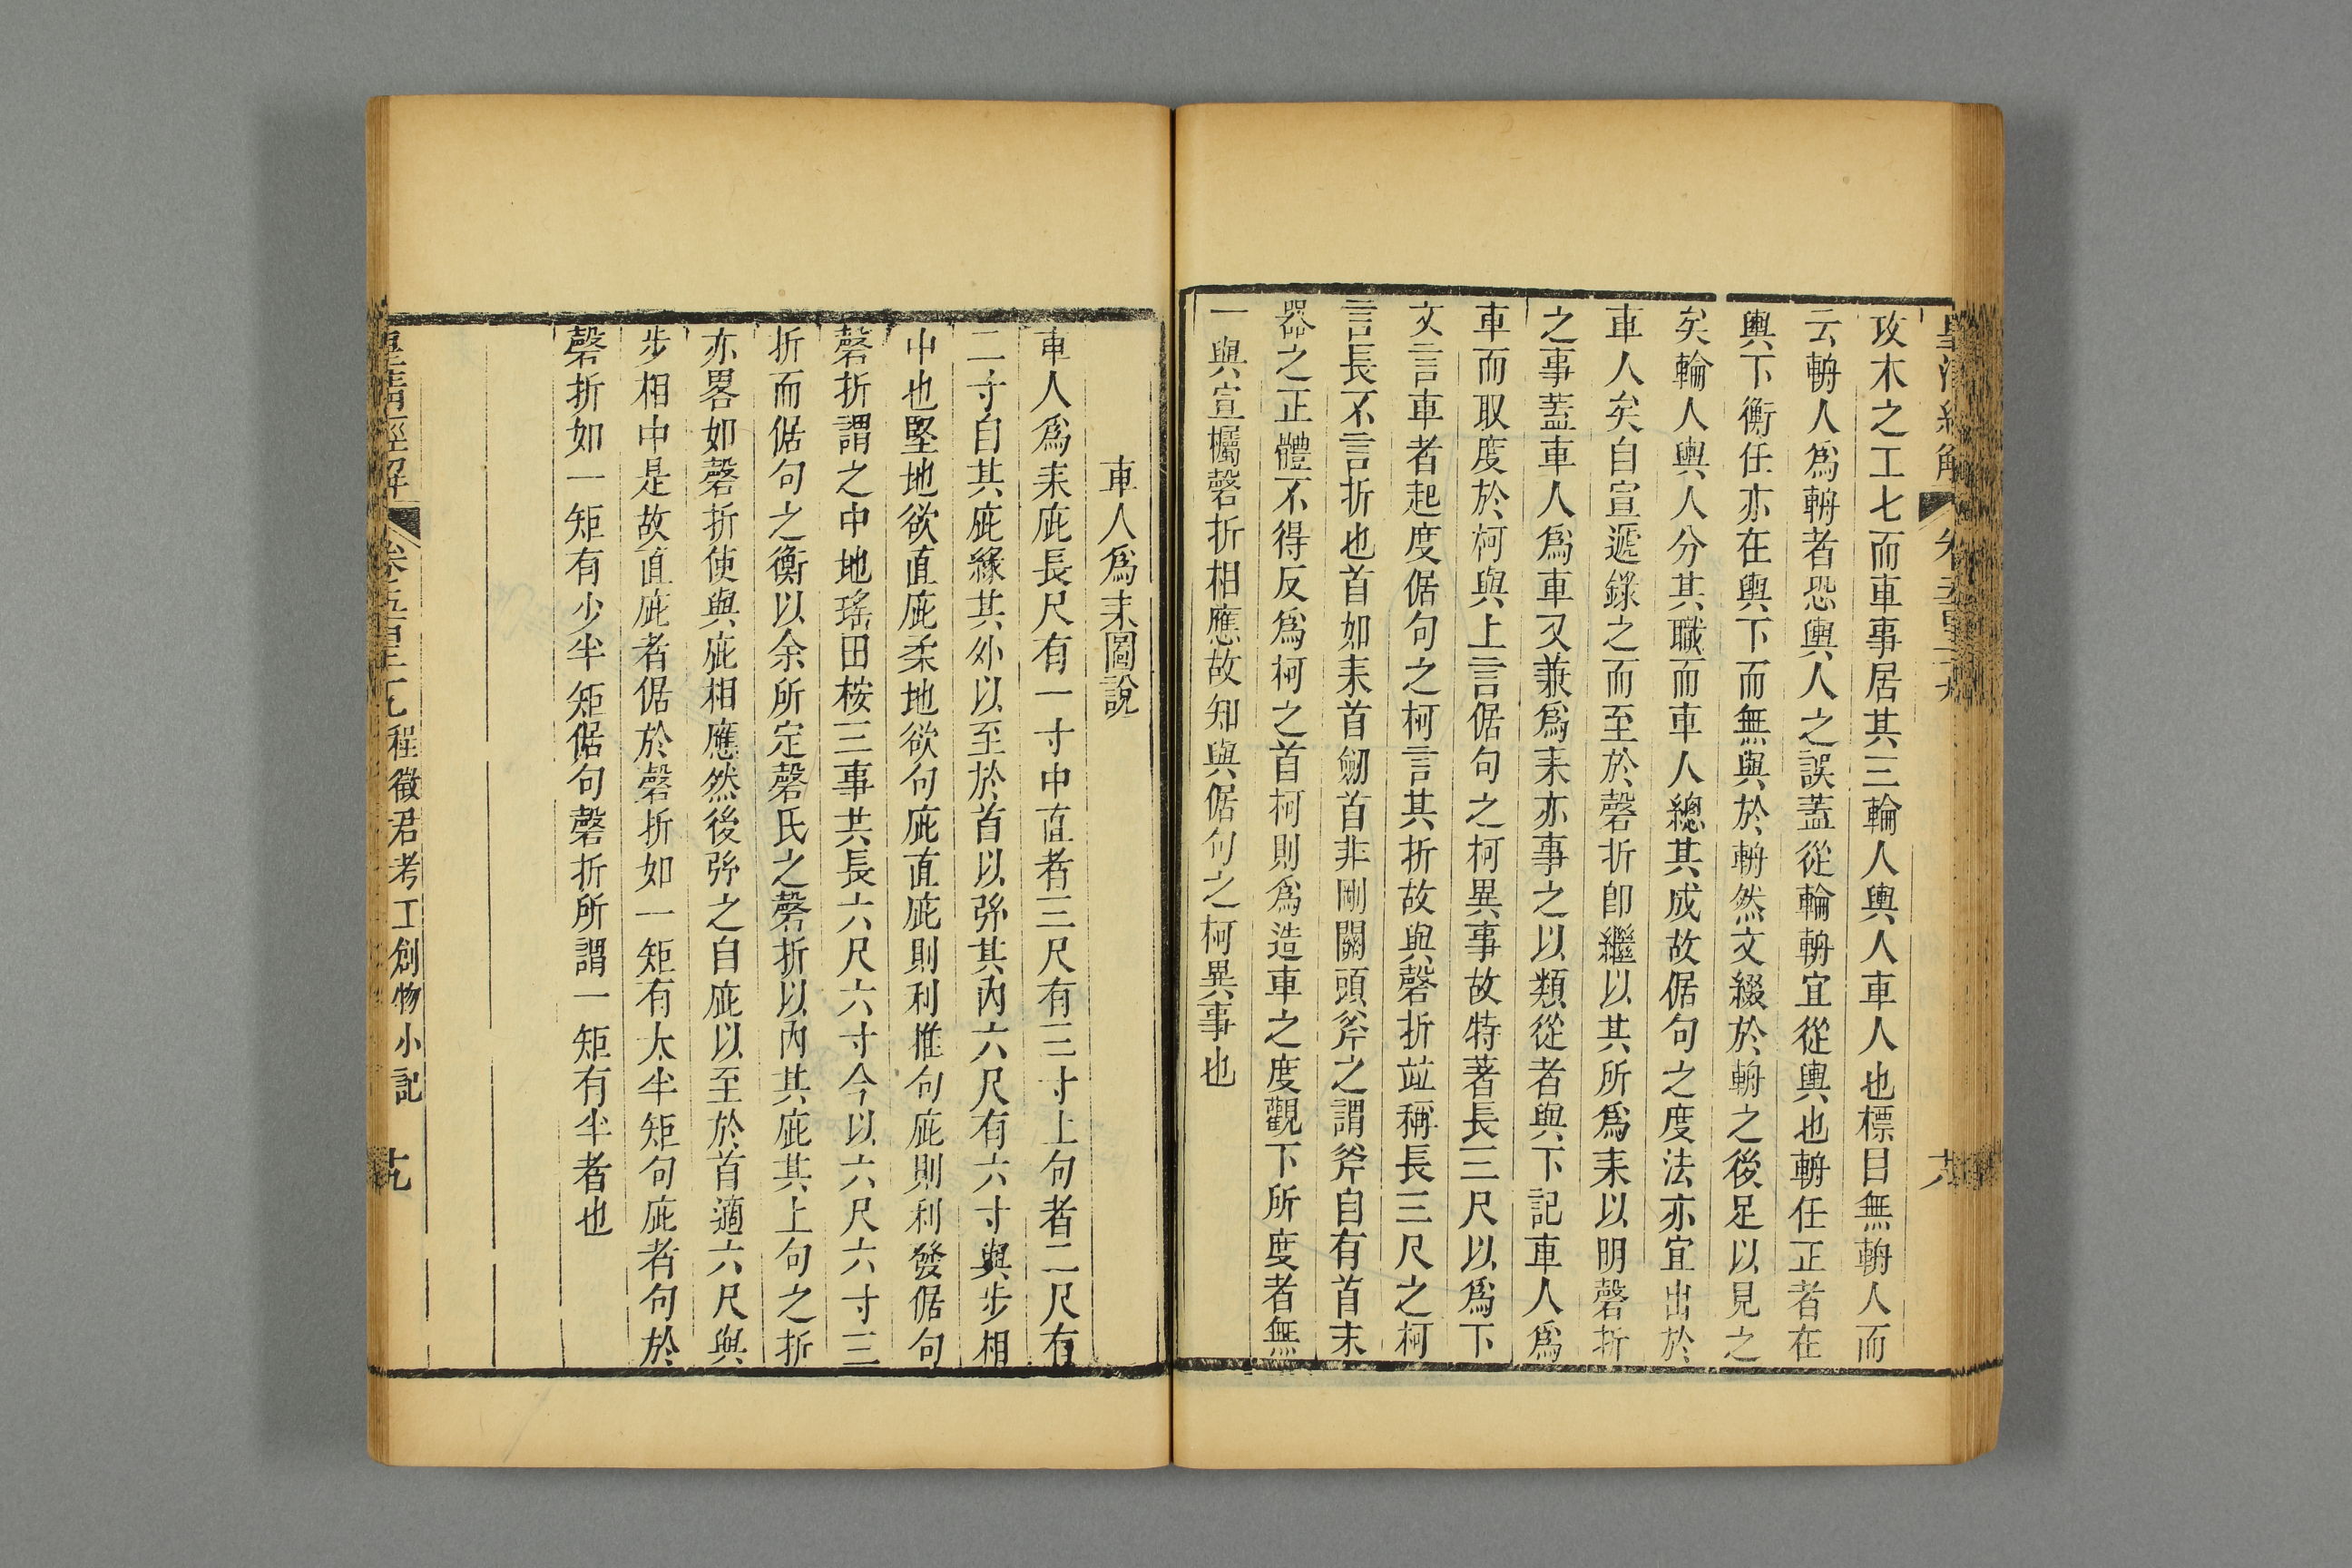 攻木之工七而車事居其三輪人輿人車人也標目無輈人而
云輈人爲輈者恐輿人之誤蓋從輪輈宜從輿也輈任正者在
輿下衡任亦在輿下而無與於輈然文綴於輈之後足以見之
矣輪人輿人分其職而車人總其成故倨句之度法亦宜出於
車人矣自宣遞錄之而至於磬折卽繼以其所爲耒以明磬折
之事蓋車人爲車又兼爲耒亦事之以類從者與下記車人爲
車而取度於柯與上言倨句之柯異事故特著長三尺以爲下
文言車者起度倨句之柯言其折故與磬折竝稱長三尺之柯
言長不言折也首如耒首劒首非剛關頭斧之謂斧自有首末
器之正體不得反爲柯之首柯則爲造車之度觀下所度者無
一與宣欘磬折相應故知與倨句之柯異事也
車人爲耒圖說
車人爲耒庛長尺有一寸中直者三尺有三寸上句者二尺有
二寸自其庛緣其外以至於首以弥其內六尺有六寸與步相
中也堅地欲直庛柔地欲句庛直庛則利推句庛則利發倨句
磬折謂之中地瑤田桉三事共長六尺六寸今以六尺六寸三
折而倨句之衡以余所定磬氏之磬折以內其庛其上句之折
亦畧如磬折使與庛相應然後弥之自庛以至於首適六尺與
步相中是故直庛者倨於磬折如一矩有太半矩句庛者句於
磬折如一矩有少半矩倨句磬折所謂一矩有半者也
皇清經解 程徵君考工創物小記